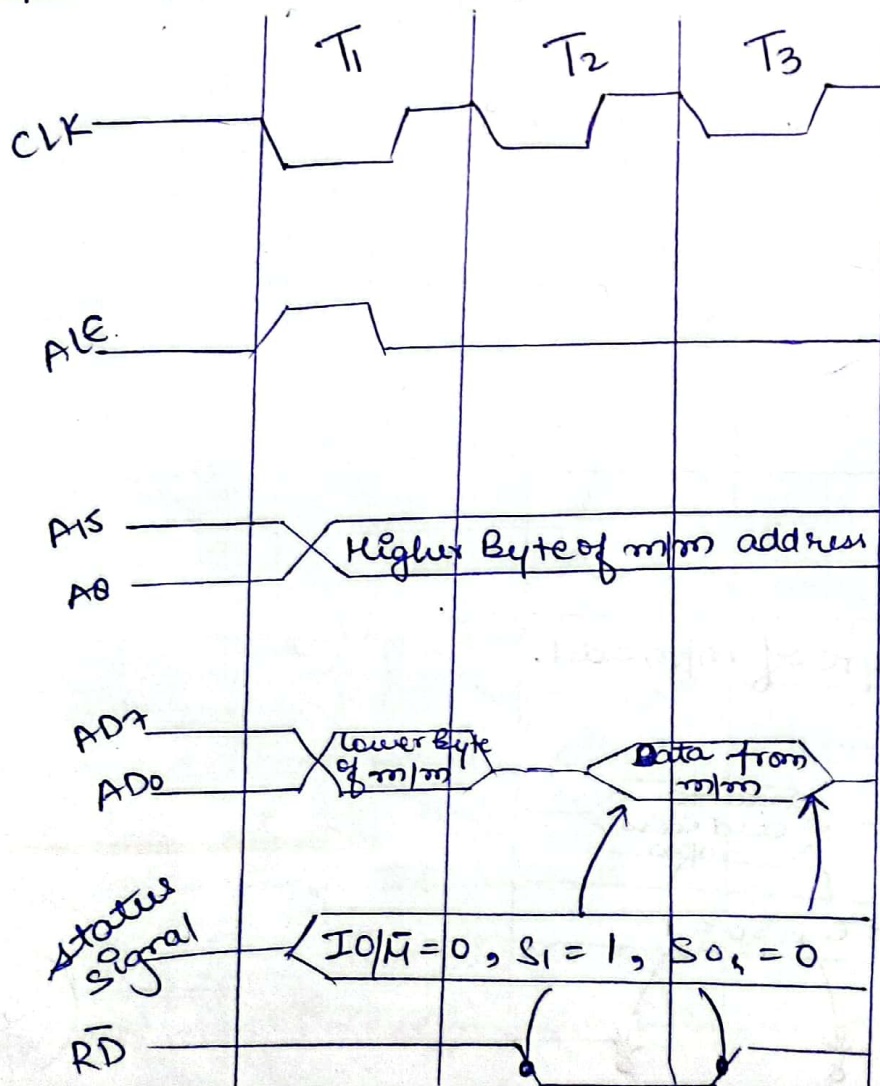 T1 T2 T3
CLK
ALE.
A15
Higher Byte of m/m address
A8
AD7
Lower Byte
of m/m
Data from
m/m
AD0
Status
Signal
IO/M̄ = 0, S1 = 1, S0, = 0
R̄D̄